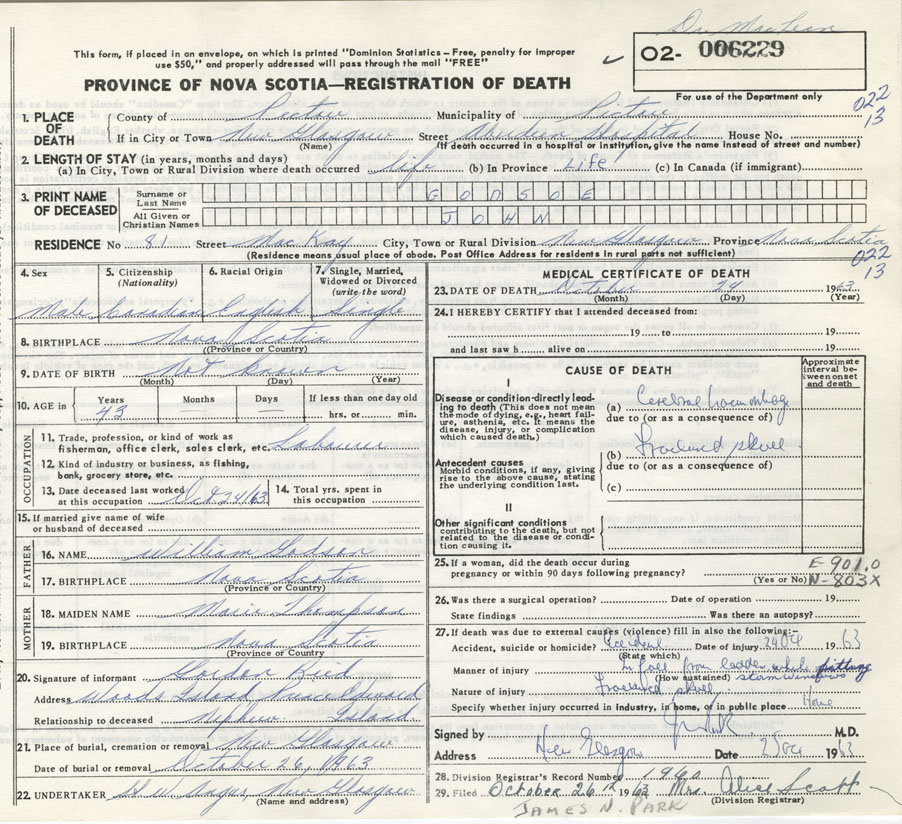 Dr. MacLean
This form, if placed in an envelope, on which is printed "Dominion Statistics – Free, penalty for improper
use $50," and properly addressed will pass through the mail "FREE"
✓ 02- 006229
PROVINCE OF NOVA SCOTIA—REGISTRATION OF DEATH
For use of the Department only
022
13
1. PLACE OF DEATH
County of Pictou Municipality of Pictou
If in City or Town New Glasgow Street Aberdeen Hospital House No.
(Name) (If death occurred in a hospital or institution, give the name instead of street and number)
2. LENGTH OF STAY (in years, months and days)
(a) In City, Town or Rural Division where death occurred life (b) In Province Life (c) In Canada (if immigrant)
3. PRINT NAME OF DECEASED
Surname or Last Name GODSOE
All Given or Christian Names JOHN
RESIDENCE No 81 Street MacKay City, Town or Rural Division New Glasgow Province Nova Scotia
(Residence means usual place of abode. Post Office Address for residents in rural parts not sufficient)
022
13
4. Sex 5. Citizenship (Nationality) 6. Racial Origin 7. Single, Married, Widowed or Divorced (write the word)
Male Canadian English Single
8. BIRTHPLACE Nova Scotia
(Province or Country)
9. DATE OF BIRTH Not known
(Month) (Day) (Year)
10. AGE in Years 43 Months — Days — If less than one day old hrs. or min.
OCCUPATION
11. Trade, profession, or kind of work as fisherman, office clerk, sales clerk, etc. Labourer
12. Kind of industry or business, as fishing, bank, grocery store, etc.
13. Date deceased last worked at this occupation Oct 24/63 14. Total yrs. spent in this occupation
15. If married give name of wife or husband of deceased
FATHER
16. NAME William Godsoe
17. BIRTHPLACE Nova Scotia
(Province or Country)
MOTHER
18. MAIDEN NAME Thompson
19. BIRTHPLACE Nova Scotia
(Province or Country)
20. Signature of informant Gordon Reid
Address Woods Island, Prince Edward
Relationship to deceased Nephew Island
21. Place of burial, cremation or removal New Glasgow
Date of burial or removal October 26, 1963
22. UNDERTAKER H. W. Angus, New Glasgow
(Name and address)
MEDICAL CERTIFICATE OF DEATH
23. DATE OF DEATH October 24 1963
(Month) (Day) (Year)
24. I HEREBY CERTIFY that I attended deceased from:
19 to 19
and last saw h alive on 19
CAUSE OF DEATH
Approximate interval between onset and death
I
Disease or condition directly leading to death (This does not mean the mode of dying, e.g., heart failure, asthenia, etc. It means the disease, injury, or complication which caused death.)
(a) Cerebral haemorrhage
due to (or as a consequence of)
Antecedent causes
Morbid conditions, if any, giving rise to the above cause, stating the underlying condition last.
(b) Fractured skull
due to (or as a consequence of)
(c)
II
Other significant conditions contributing to the death, but not related to the disease or condition causing it.
25. If a woman, did the death occur during pregnancy or within 90 days following pregnancy?
(Yes or No)
E-901.0
N-803X
26. Was there a surgical operation? Date of operation 19
State findings Was there an autopsy?
27. If death was due to external causes (violence) fill in also the following:–
Accident, suicide or homicide? Accident Date of injury 24 Oct 1963
(State which)
Manner of injury fall from ladder while putting
(How sustained) stormwindows
Nature of injury Fractured skull
Specify whether injury occurred in industry, in home, or in public place Home
Signed by M.D.
Address New Glasgow Date 25 Oct 1963
28. Division Registrar's Record Number
29. Filed October 26th 1963 Mrs. Alice Scott
(Division Registrar)
JAMES N. PARK